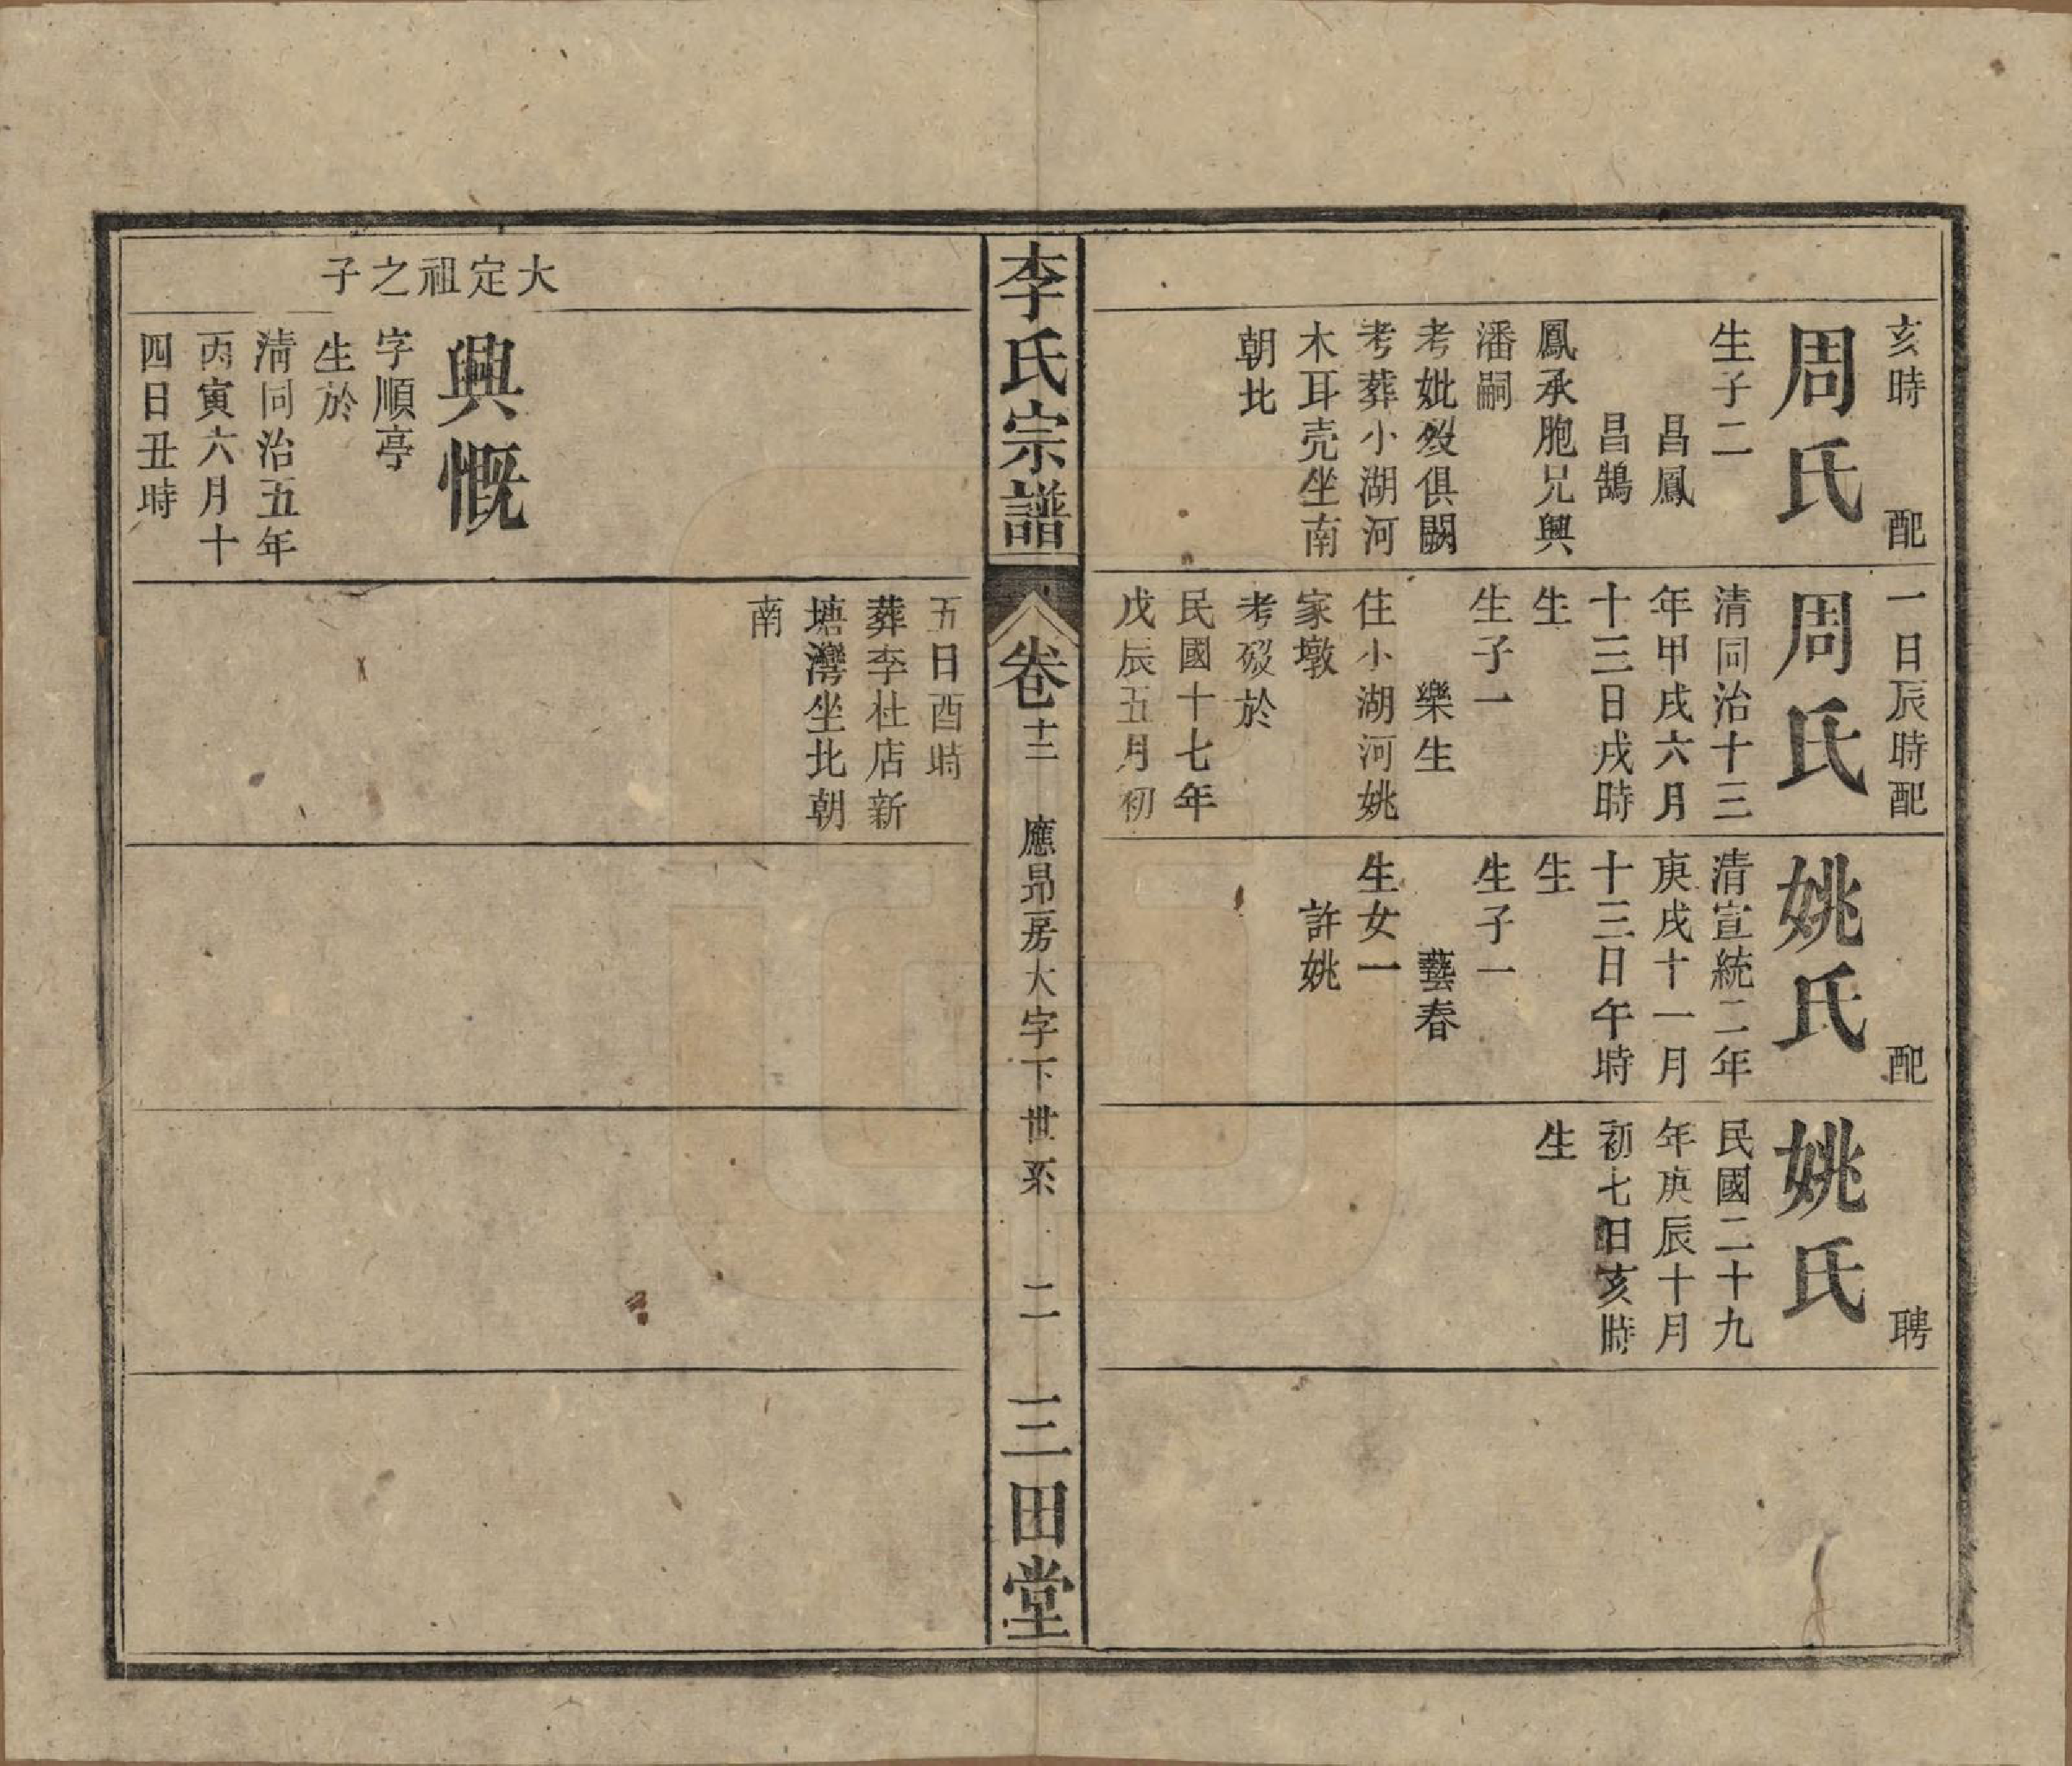 亥時　配
周氏
生子二
昌鳳
昌鵠
鳳承胞兄興
潘嗣
考妣歿俱闕
考葬小湖河
木耳壳坐南
朝北
一日辰時配
周氏
清同治十三
年甲戌六月
十三日戌時
生
生子一
樂生
住小湖河姚
家墩
考歿於
民國十七年
戊辰五月初
配
姚氏
清宣統二年
庚戌十一月
十三日午時
生
生子一
藝春
生女一
許姚
聘
姚氏
民國二十九
年庚辰十月
初七日亥時
生
李氏宗譜
卷十二
應昂房大字下世系
二
三田堂
大定祖之子
興慨
字順亭
生於
清同治五年
丙寅六月十
四日丑時
五日酉時
葬李杜店新
塘灣坐北朝
南